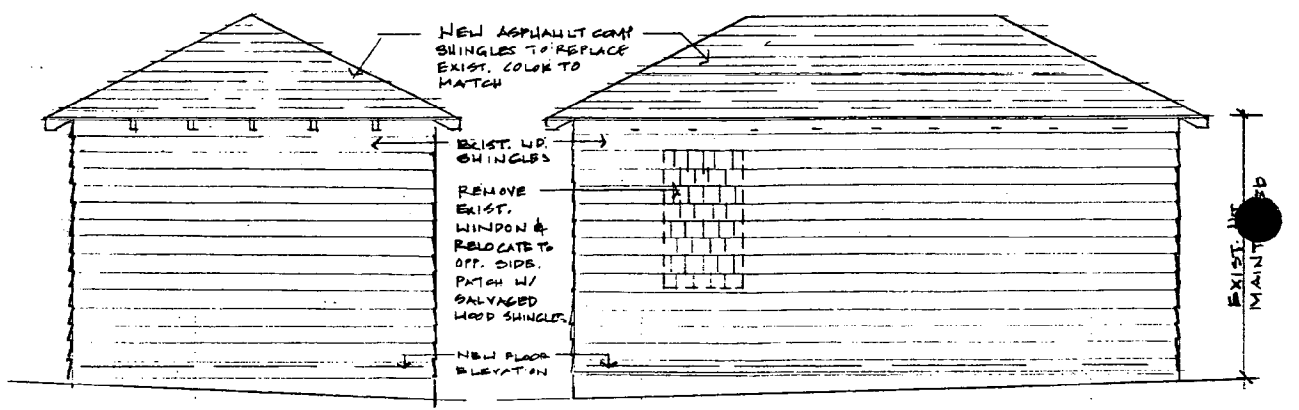 NEW ASPHAULT COMP
SHINGLES TO REPLACE
EXIST. COLOR TO
MATCH
EXIST. WD.
SHINGLES
REMOVE
EXIST.
WINDOW &
RELOCATE TO
OPP. SIDE.
PATCH W/
SALVAGED
WOOD SHINGLES
NEW FLOOR
ELEVATION
EXIST. HT.